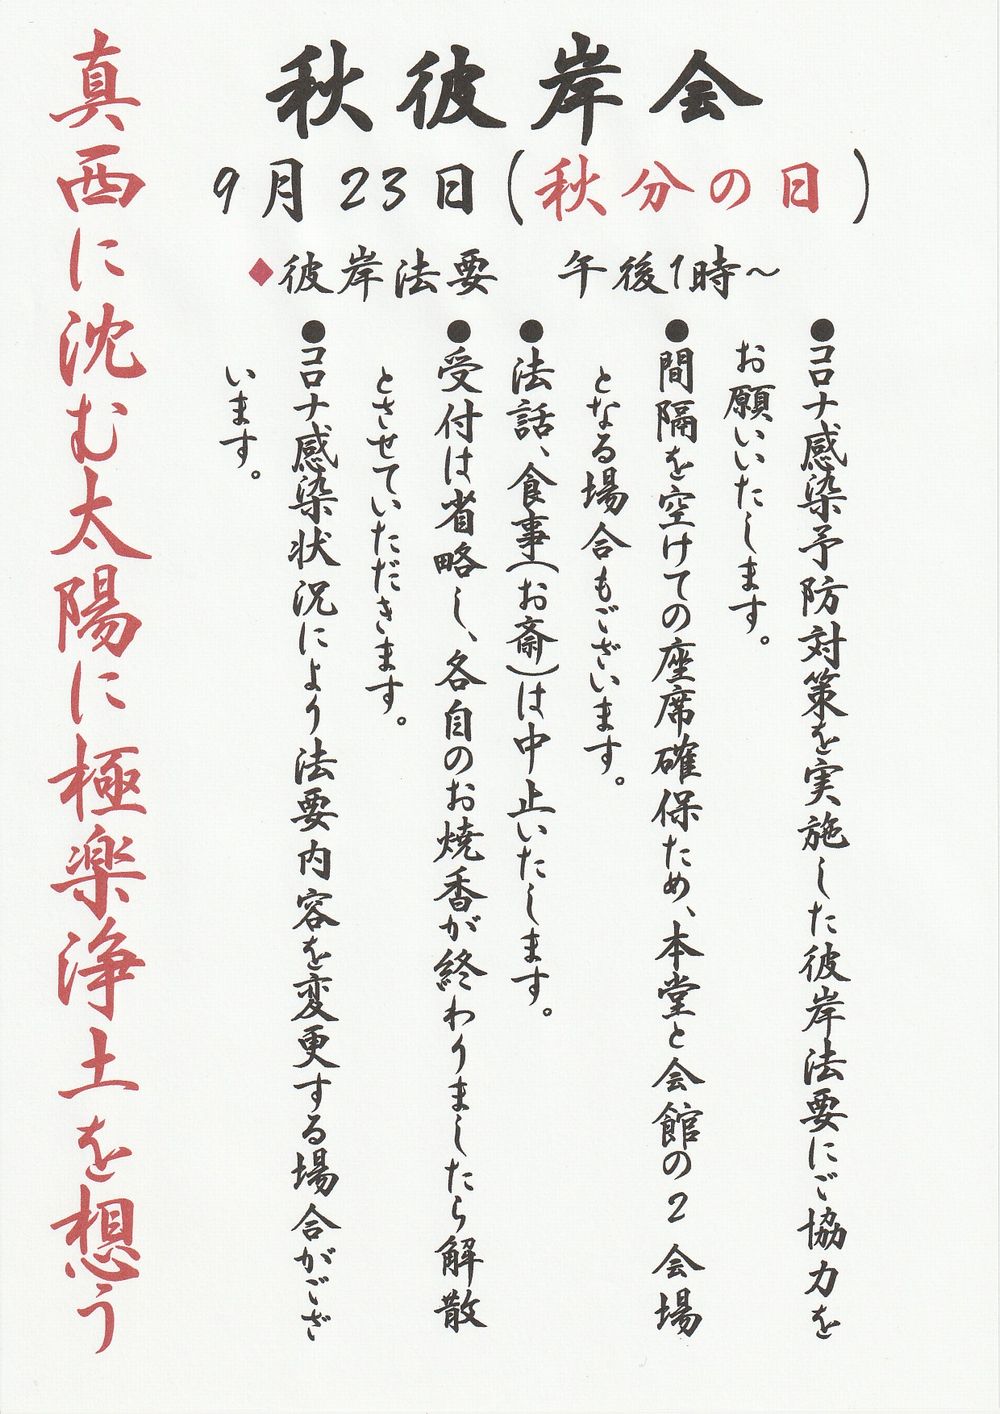 秋彼岸会
9月23日(秋分の日)
◆彼岸法要　午後1時~
●コロナ感染予防対策を実施した彼岸法要にご協力を
お願いいたします。
●間隔を空けての座席確保ため、本堂と会館の2会場
となる場合もございます。
●法話、食事(お斎)は中止いたします。
●受付は省略し、各自のお焼香が終わりましたら解散
とさせていただきます。
●コロナ感染状況により法要内容を変更する場合がござ
います。
真西に沈む太陽に極楽浄土を想う